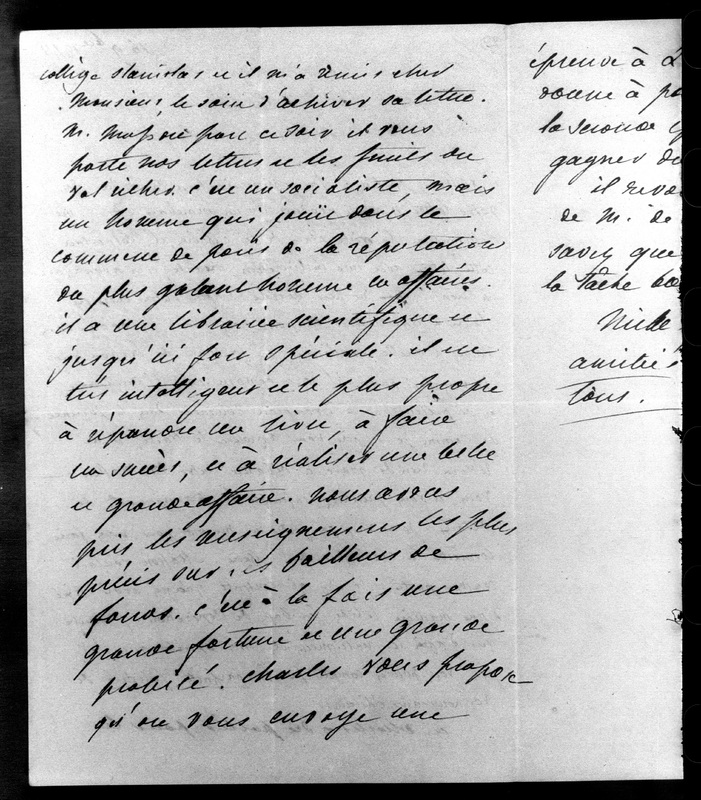 collège stanislas et il m'a remis cher
Monsieur, le soin d'achever sa lettre.
M. part ce soir il vous
porte nos lettres et les fruits du
c'est un socialiste, mais
un homme qui jouit dans le
commerce de paris de la réputation
du plus galant homme en affaires.
il a une librairie scientifique et
jusqu'ici fort spéciale. il est
très intelligent et le plus propre
à répandre un livre, à faire
un succès, et à réaliser une belle
et grande affaire. nous avons
pris les renseignemens les plus
précis sur ses bailleurs de
fonds. c'est à la fois une
grande fortune et une grande
probité. Charles vous propose
qu'on vous envoye une
épreuve à
donne à
la seconde
gagner du
il
de M. de
savez que
la tâche
Mille
amitiés
tous.